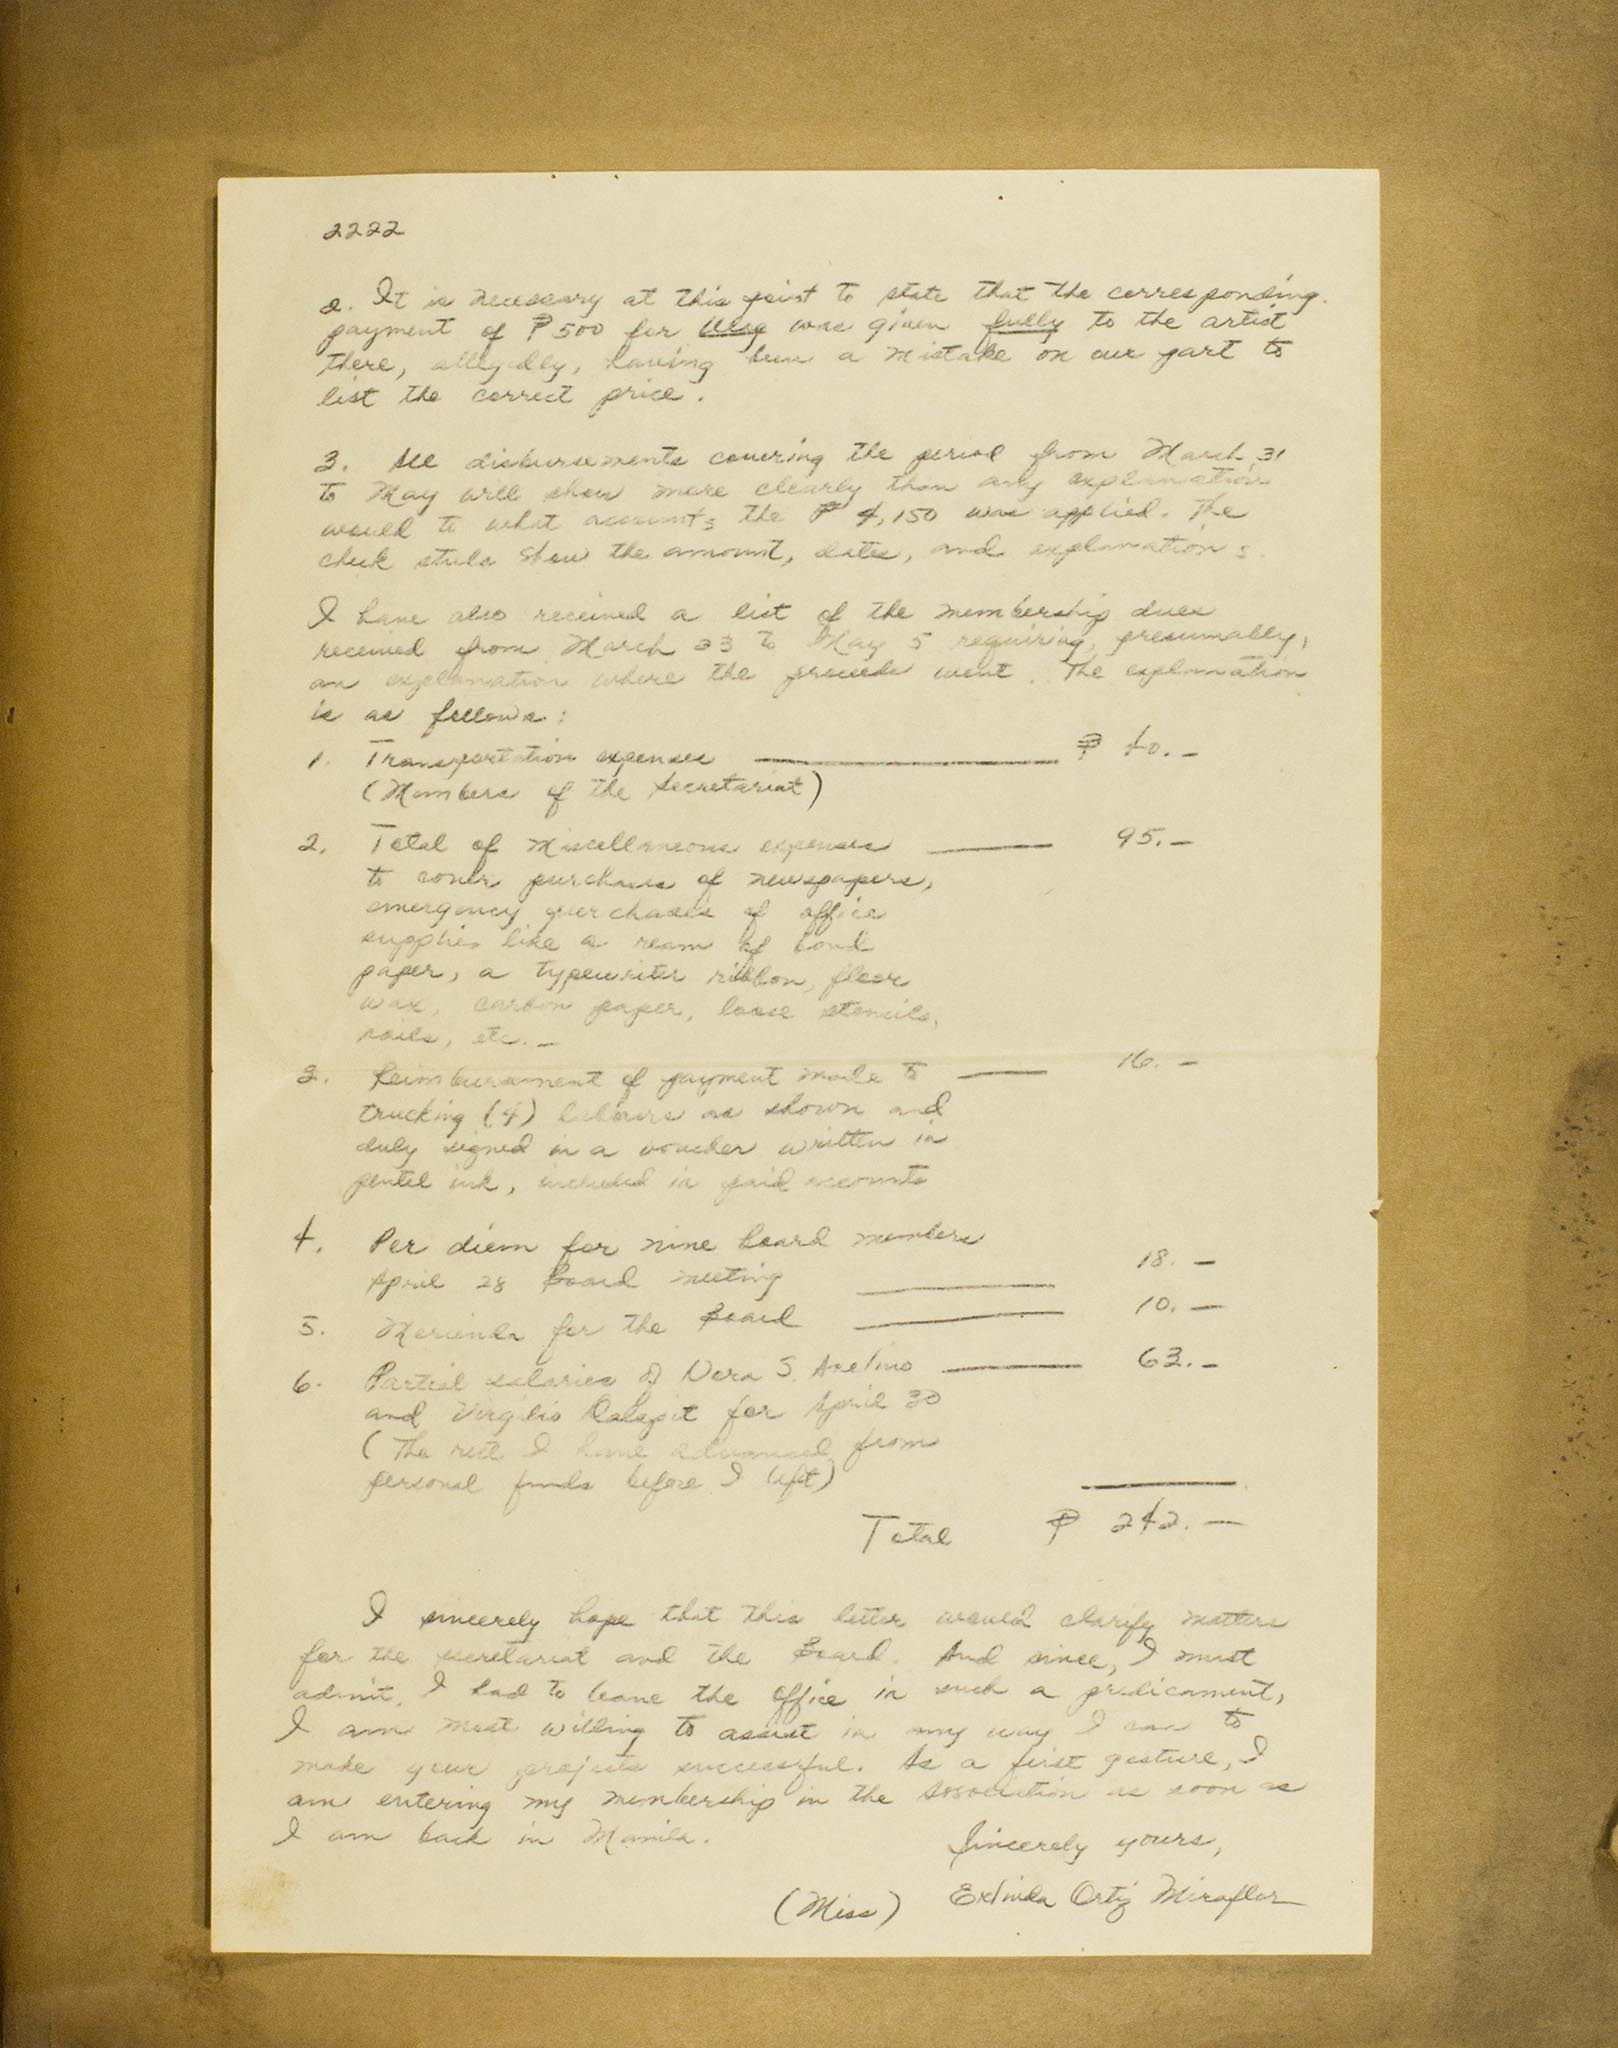 2222
2. It is necessary at this point to state that the corresponding
payment of ₱500 for was given fully to the artist
there, allegedly, having been a mistake on our part to
list the correct price.
3. All disbursements covering the period from March 31
to May will show more clearly than any explanation
would to what accounts the ₱ 4,150 was applied. The
check stubs show the amount, dates, and explanations.
I have also received a list of the membership dues
received from March 23 to May 5 requiring, presumably,
an explanation where the proceeds went. The explanation
is as follows:
1. Transportation expenses — ₱ 40.—
(Members of the Secretariat)
2. Total of Miscellaneous expenses — 95.—
to cover purchases of newspapers,
emergency purchases of office
supplies like a ream of bond
paper, a typewriter ribbon, floor
wax, carbon paper, loose stencils,
nails, etc.—
3. Reimbursement of payment made to — 16.—
trucking (4) laborers as shown and
duly signed in a voucher written in
pentel ink, included in paid accounts
4. Per diem for nine board members
April 28 Board meeting — 18.—
5. Merienda for the Board — 10.—
6. Partial salaries of S. Avelino — 63.—
and Virgilio Dalapit for April 30
(The rest I have advanced from
personal funds before I left)
Total ₱ 242.—
I sincerely hope that this letter would clarify matters
for the secretariat and the Board. And since, I must
admit, I had to leave the office in such a predicament,
I am most willing to assist in any way I can to
make your projects successful. As a first gesture, I
am entering my membership in the Association as soon as
I am back in Manila.
Sincerely yours,
(Miss) Exlinda Ortiz Miraflor